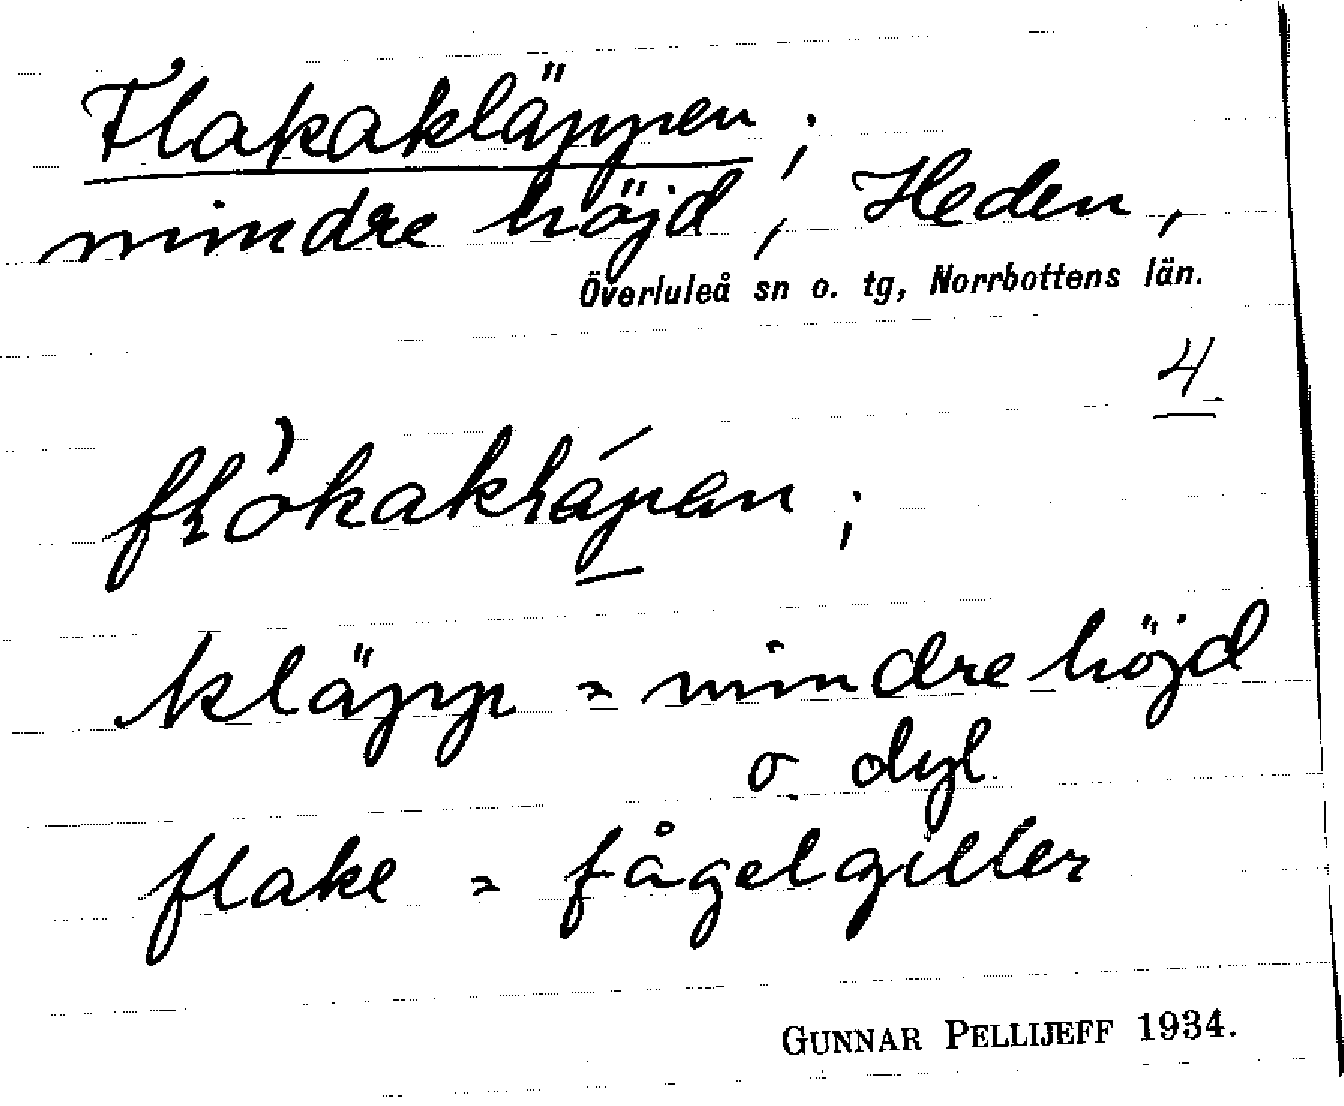 Flakakläppen;
mindre höjd, Heden,
Överluleå sn o. tg, Norrbottens län.
4
kläpp = mindre höjd
o. dyl.
flake = fågelgiller
GUNNAR PELLIJEFF 1934.